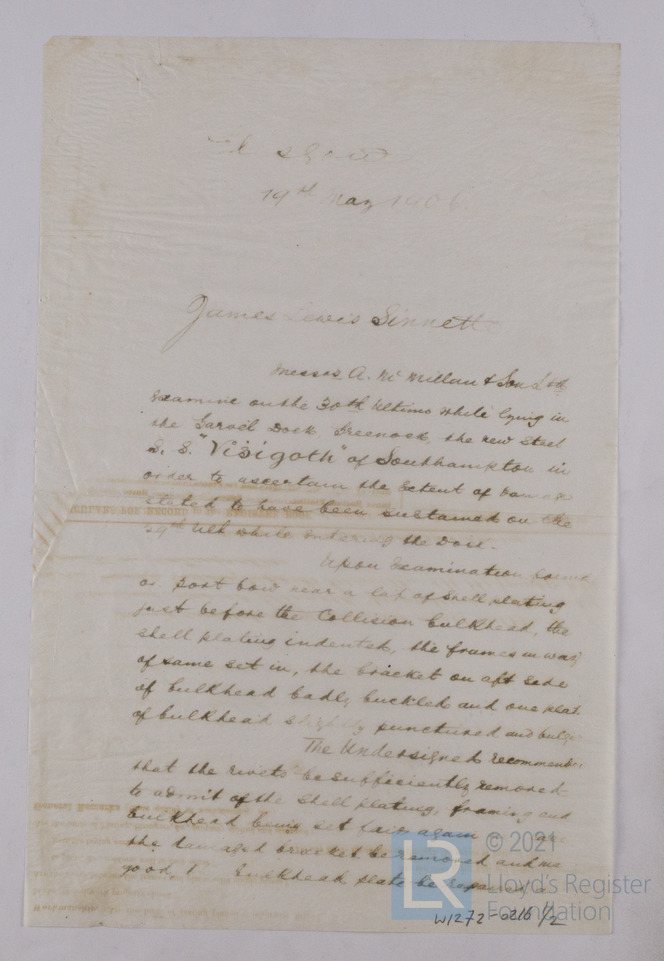 19th May 1906
James Lewis Sinnett
Messrs A. McMillan & Son Ltd
examine on the 30th Ultimo while lying in
the Garvel Dock Greenock, the new Steel
S. S. "Visigoth" of Southampton in
order to ascertain the extent of damage
stated to have been sustained on the
29th Ulto while entering the Dock.
Upon Examination found
on port bow near a lap of shell plating
just before the Collision bulkhead, the
shell plating indented, the frames in way
of same set in, the bracket on aft side
of bulkhead badly buckled and one plate
of bulkhead slightly punctured and bulged
The Undersigned recommended
that the rivets be sufficiently removed
to admit of the shell plating, framing and
bulkhead being set fair again
the damaged bracket be removed and
good, bulkhead plate be repaired
© 2021
Lloyd's Register
Foundation
LR
W1272-0216 1/2